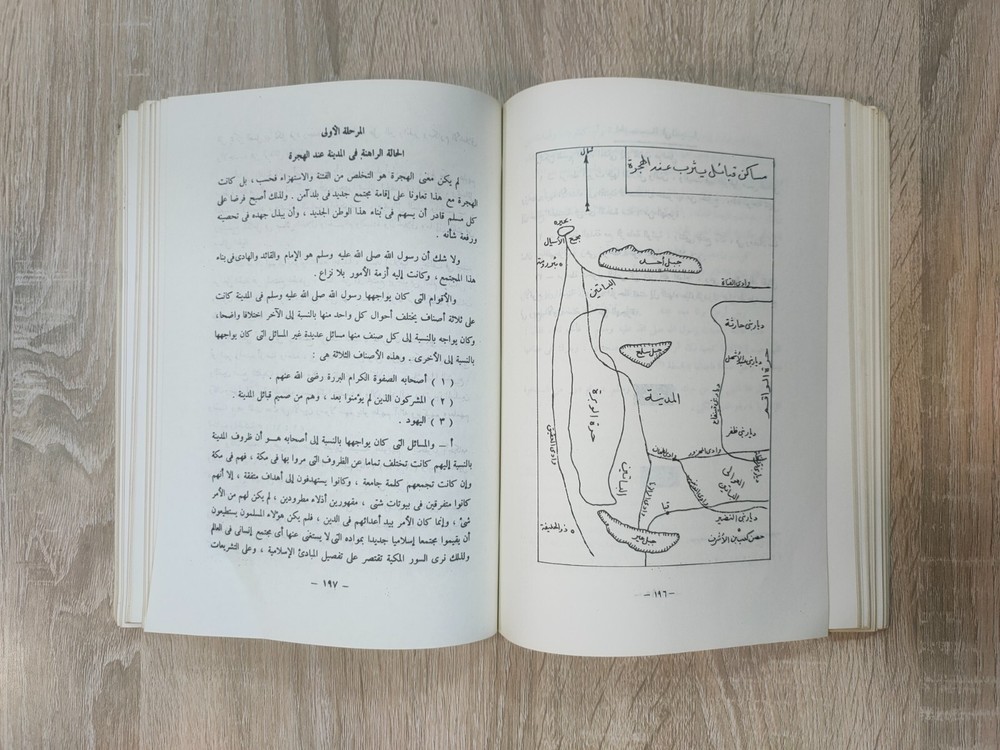 مساكن قبائل يثرب عند الهجرة
شمال
بحيرة
مجمع الأسيال
بئر رومة
جبل أحد
البساتين
وادى القناة
ديار بنى حارثة
جبل سلع
ديار بنى عبد الأشهل
حرة الواقم
حرة الوبرة
المدينة
ديار بنى ظفر
وادى العقيق
وادى مهزور
العوالى
البساتين
البساتين
قبا
ديار بنى النضير
حصن كعب بن الأشرف
ذو الحليفة
جبل عير
– ١٩٦ –
المرحلة الأولى
الحالة الراهنة فى المدينة عند الهجرة
لم يكن معنى الهجرة هو التخلص من الفتنة والاستهزاء فحسب ، بل كانت
الهجرة مع هذا تعاونا على إقامة مجتمع جديد فى بلد آمن . ولذلك أصبح فرضا على
كل مسلم قادر أن يسهم فى بناء هذا الوطن الجديد ، وأن يبذل جهده فى تحصينه
ورفعة شأنه .
ولا شك أن رسول الله صلى الله عليه وسلم هو الإمام والقائد والهادى فى بناء
هذا المجتمع ، وكانت إليه أزمة الأمور بلا نزاع .
والأقوام التى كان يواجهها رسول الله صلى الله عليه وسلم فى المدينة كانت
على ثلاثة أصناف يختلف أحوال كل واحد منها بالنسبة إلى الآخر اختلافا واضحا ،
وكان يواجه بالنسبة إلى كل صنف منها مسائل عديدة غير المسائل التى كان يواجهها
بالنسبة إلى الأخرى . وهذه الأصناف الثلاثة هى :
( ١ ) أصحابه الصفوة الكرام البررة رضى الله عنهم .
( ٢ ) المشركون الذين لم يؤمنوا بعد ، وهم من صميم قبائل المدينة .
( ٣ ) اليهود .
أ – والمسائل التى كان يواجهها بالنسبة إلى أصحابه هو أن ظروف المدينة
بالنسبة إليهم كانت تختلف تماما عن الظروف التى مروا بها فى مكة ، فهم فى مكة
وإن كانت تجمعهم كلمة جامعة ، وكانوا يستهدفون إلى أهداف متفقة ، إلا أنهم
كانوا متفرقين فى بيوتات شتى ، مقهورين أذلاء مطرودين ، لم يكن لهم من الأمر
شئ ، وإنما كان الأمر بيد أعدائهم فى الدين ، فلم يكن هؤلاء المسلمون يستطيعون
أن يقيموا مجتمعا إسلاميا جديدا بمواده التى لا يستغنى عنها أى مجتمع إنسانى فى العالم
ولذلك نرى السور المكية تقتصر على تفصيل المبادئ الإسلامية ، وعلى التشريعات
– ١٩٧ –